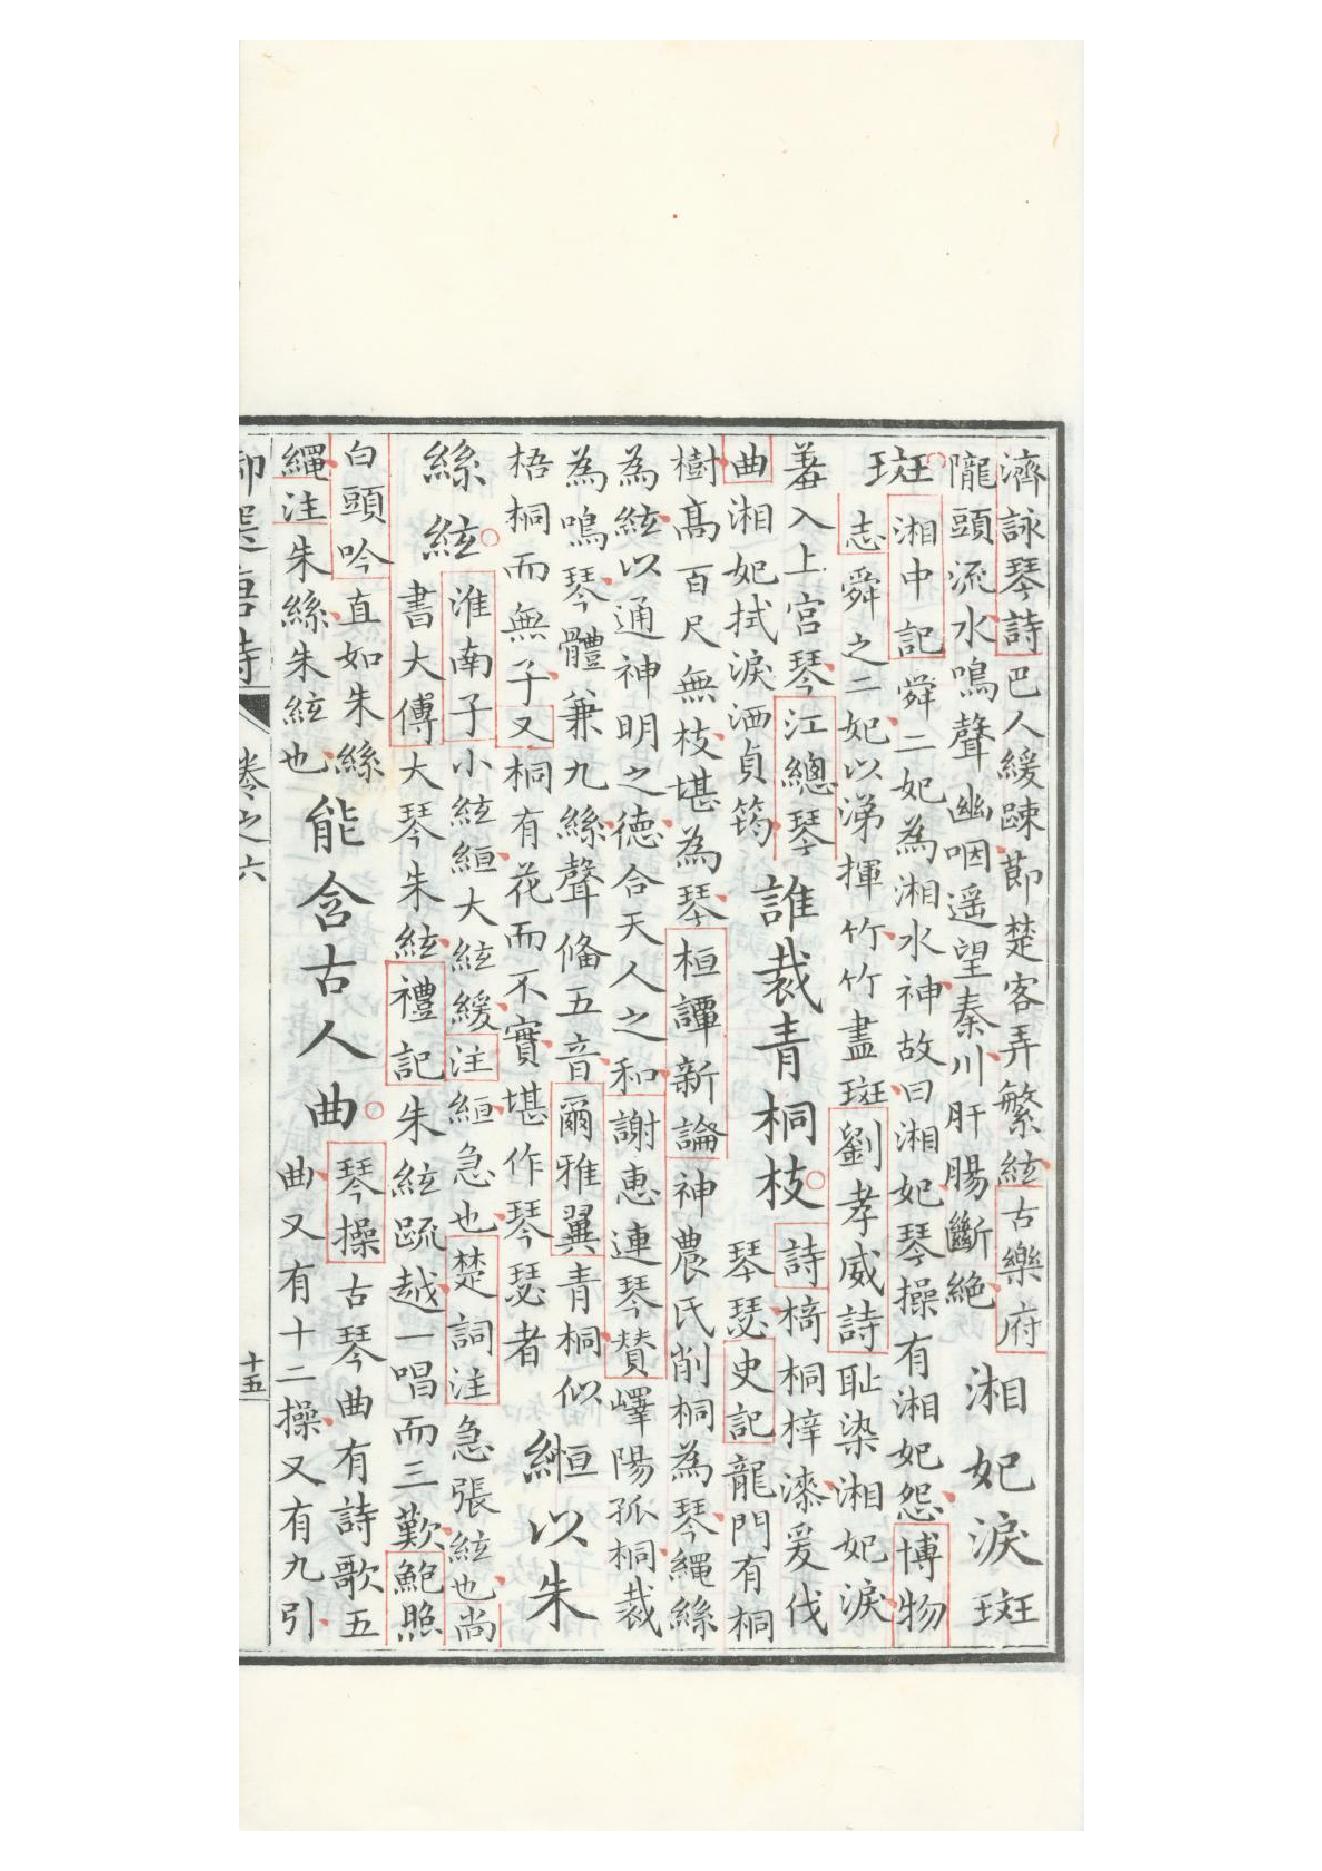 濟詠琴詩巴人緩踈節楚客弄繁絃古樂府
隴頭流水鳴聲幽咽遥望秦川肝腸斷絶
湘妃淚斑
斑
湘中記舜二妃為湘水神故曰湘妃琴操有湘妃怨博物
志舜之二妃以涕揮竹竹盡斑劉孝威詩耻染湘妃淚
羞入上宮琴江總琴
曲湘妃拭淚洒貞筠
誰裁青桐枝
詩椅桐梓漆爰伐
琴瑟史記龍門有桐
樹高百尺無枝堪為琴桓譚新論神農氏削桐為琴繩絲
為絃以通神明之德合天人之和謝惠連琴賛嶧陽孤桐裁
為鳴琴體兼九絲聲備五音爾雅翼青桐似
梧桐而無子又桐有花而不實堪作琴瑟者
縆以朱
絲絃
淮南子小絃縆大絃緩注縆急也楚詞注急張絃也尚
書大傳大琴朱絃禮記朱絃疏越一唱而三歎鮑照
白頭吟直如朱絲
繩注朱絲朱絃也
能含古人曲
琴操古琴曲有詩歌五
曲又有十二操又有九引
御選唐詩
卷之六
十五